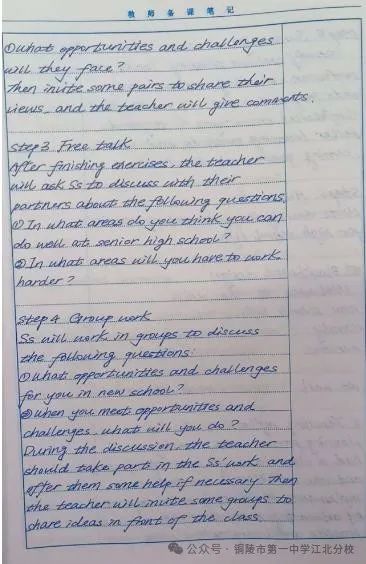 教师备课笔记
①what opportunities and challenges
will they face?
Then invite some pairs to share their
views, and the teacher will give comments.
Step 3 Free talk
After finishing exercises, the teacher
will ask Ss to discuss with their
partners about the following questions.
①In what areas do you think you can
do well at senior high school?
②In what areas will you have to work
harder?
Step 4 Group work
Ss will work in groups to discuss
the following questions:
①what opportunities and challenges
for you in new school?
②when you meet opportunities and
challenges, what will you do?
During the discussion, the teacher
should take part in the Ss' work and
offer them some help if necessary. Then
the teacher will invite some groups to
share ideas in front of the class.
公众号·铜陵市第一中学江北分校